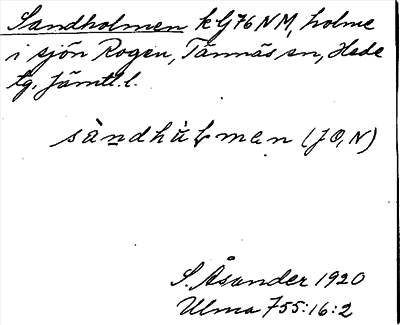 Sandholmen k G76 NM, holme
i sjön Rogen, Tännäs sn, Hede
tg. Jämtl. l.
sàndhùlmen (JO, N)
S. Åsander 1920
Ulma 755:16:2